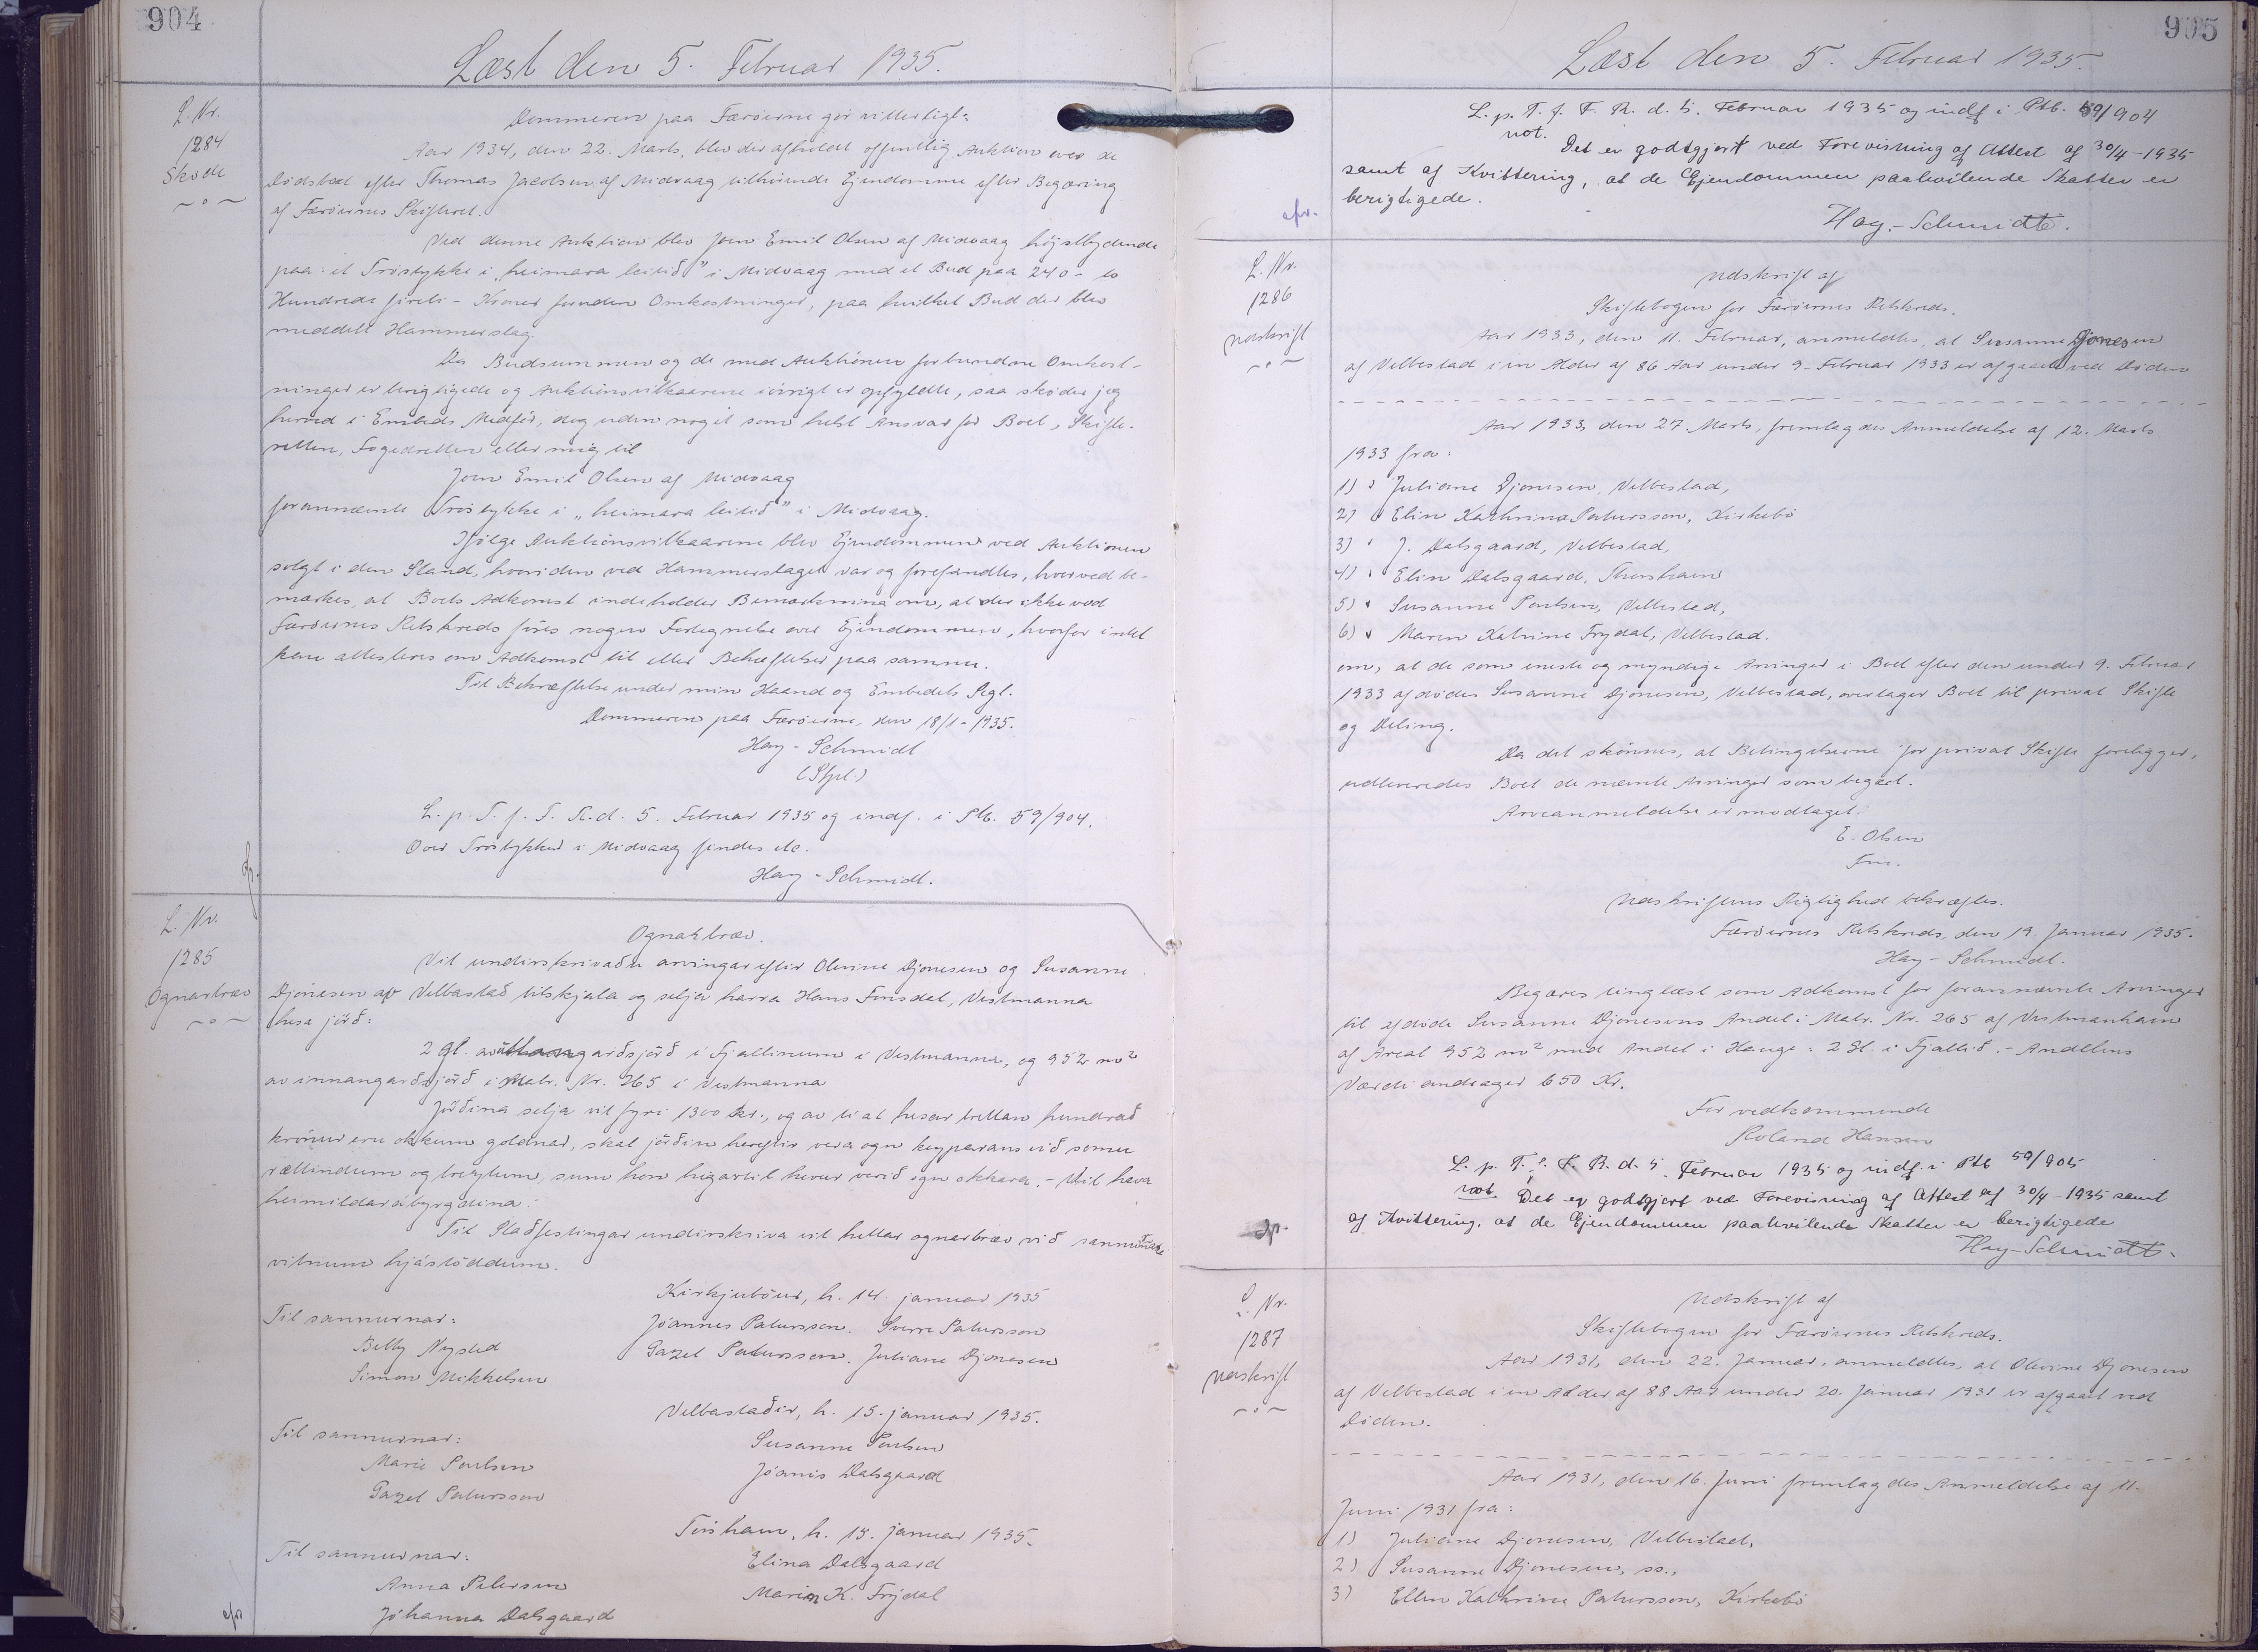 904
Læst den 5. Februar 1935.
L. Nr.
1284
Skøde
Dommeren paa Færøerne gør vitterligt:
Aar 1934, den 22. Marts, blev der afholdt offentlig Auktion over de
Dødsboet efter Thomas Jacobsen af Midvaag tilhørende Ejendomme efter Begæring
af Færøernes Skifteret.
Ved denne Auktion blev Joen Emil Olsen af Midvaag højstbydende
paa: et Trøstykke i "heimara leitið" i Midvaag med et Bud paa 240 - to
Hundrede fireti - Kroner foruden Omkostninger, paa hvilket Bud der blev
meddelt Hammerslag.
Da Budsummen og de med Auktionen forbundne Omkost-
ninger er berigtigede og Auktionsvilkaarene iøvrigt er opfyldte, saa skøder jeg
herved i Embeds Medfør, dog uden noget som helst Ansvar for Boet, Skifte-
retten, Fogedretten eller mig til
Joen Emil Olsen af Midvaag
forannævnte Trøstykke i "heimara leitið" i Midvaag.
Ifølge Auktionsvilkaarene blev Ejendommen ved Auktionen
solgt i den Stand, hvori den ved Hammerslaget var og forefandtes, hvorved be-
mærkes, at Boets Adkomst indeholder Bemærkning om, at der ikke ved
Færøernes Retskreds føres nogen Fortegnelse over Ejendommen, hvorfor intet
kan attesteres om Adkomst til eller Behæftelser paa samme.
Til Bekræftelse under min Haand og Embedets Segl.
Dommeren paa Færøerne, den 18/1 - 1935.
Hay-Schmidt
(Sgl.)
L. p. T. f. F. R. d. 5. Februar 1935 og indf. i Ptb. 59/904.
Over Trøstykker i Midvaag findes
Hay-Schmidt.
L. Nr.
1285
Ognarbræv
Ognarbræv.
Vit undirskrivaðu arvingar eftir Olevine Djonesen og Susanne
Djónesen av Velbastað tilskjøta og selja harra Hans Fonsdal, Vestmanna
hesa jørð:
2 gl. av uttangarðsjørð i Fjallinum i Vestmanna, og 952 m²
av innangarðsjørð i Matr. Nr. 265 í Vestmanna
Jørðina selja vit fyri 1300 kr., og av tí at hesar trettan hundrað
krónur eru okkum goldnar, skal jørðin hereftir vera ogn keyparans við somu
rættindum og treytum, sum hon higartil hevur verið ogn okkara. - Vit hava
heimildarábyrgdina.
Til Staðfestingar undirskriva vit hettar ognarbræv við sannorðaðe
vitnum hjástøddum.
Kirkjubøur, h. 14. januar 1935
Til sannurnar:
Jóannes Patursson. Sverre Patursson
Betty Nysted
Gazet Patursson. Juliane Djonesen
Simon Mikkelsen
Velbastaðir, h. 15. januar 1935.
Til sannurnar:
Susanne Poulsen
Marie Poulsen
Jóanis Dalsgaard
Gazet Patursson
Tórshavn, h. 15. januar 1935.
Til sannurnar:
Elina Dalsgaard
Anna Petersen
Marin K. Frýdal
Jóhanna Dalsgaard
905
Læst den 5. Februar 1935.
L. p. T. f. F. R. d. 5. Februar 1935 og indf i Ptb. 59/904
not.
Det er godtgjort ved Forevisning af Attest af 30/4-1935
samt af Kvittering, at de Ejendommen paahvilende Skatter er
berigtigede.
Hay-Schmidt.
L. Nr.
1286
Udskrift
Udskrift af
Skiftebogen for Færøernes Retskreds.
Aar 1933, den 11. Februar, anmeldtes, at Susanne Djonesen
af Velbestad i en Alder af 86 Aar under 9. Februar 1933 er afgaaet ved Døden
Aar 1933, den 27. Marts, fremlagdes Anmeldelse af 12. Marts
1933 fra:
1) Juliane Djonesen, Velbestad,
2) Elin Kathrina Patursson, Kirkebø
3) J. Dalsgaard, Velbestad,
4) Elin Dalsgaard, Thorshavn
5) Susanne Poulsen, Velbestad,
6) Maren Katrine Frydal, Velbestad.
om, at de som eneste og myndige Arvinger i Boet efter den under 9. Februar
1933 afdøde Susanne Djonesen, Velbestad, overtager Boet til privat Skifte
og Deling.
Da det skønnes, at Betingelserne for privat Skifte foreligger,
udleveredes Boet de nævnte Arvinger som begært.
Arveanmeldelse er modtaget.
E. Olsen
Fm.
Udskriftens Rigtighed bekræftes.
Færøernes Retskreds, den 19. Januar 1935.
Hay-Schmidt.
Begæres tinglæst som Adkomst for forannævnte Arvinger
til afdøde Susanne Djonesens Andel i Matr. Nr. 265 af Vestmanhavn
af Areal 952 m² med Andel i Hauge: 2 Gl. i Fjallið. - Andelens
Værdi andrager 650 Kr.
For vedkommende
Roland Hansen
L. p. T. f. F. R. d. 5. Februar 1935 og indf. i Ptb 59/905
not. Det er godtgjort ved Forevisning af Attest af 30/4-1935 samt
af Kvittering, at de Ejendommen paahvilende Skatter er berigtigede
Hay-Schmidt.
L. Nr.
1287
Udskrift
Udskrift af
Skiftebogen for Færøernes Retskreds.
Aar 1931, den 22. Januar, anmeldtes, at Olevine Djonesen
af Velbestad i en Alder af 88 Aar under 20. Januar 1931 er afgaaet ved
Døden.
Aar 1931, den 16. Juni fremlagdes Anmeldelse af 11.
Juni 1931 fra:
1) Juliane Djonesen, Velbestad,
2) Susanne Djonesen, ss.,
3) Ellen Kathrine Patursson, Kirkebø